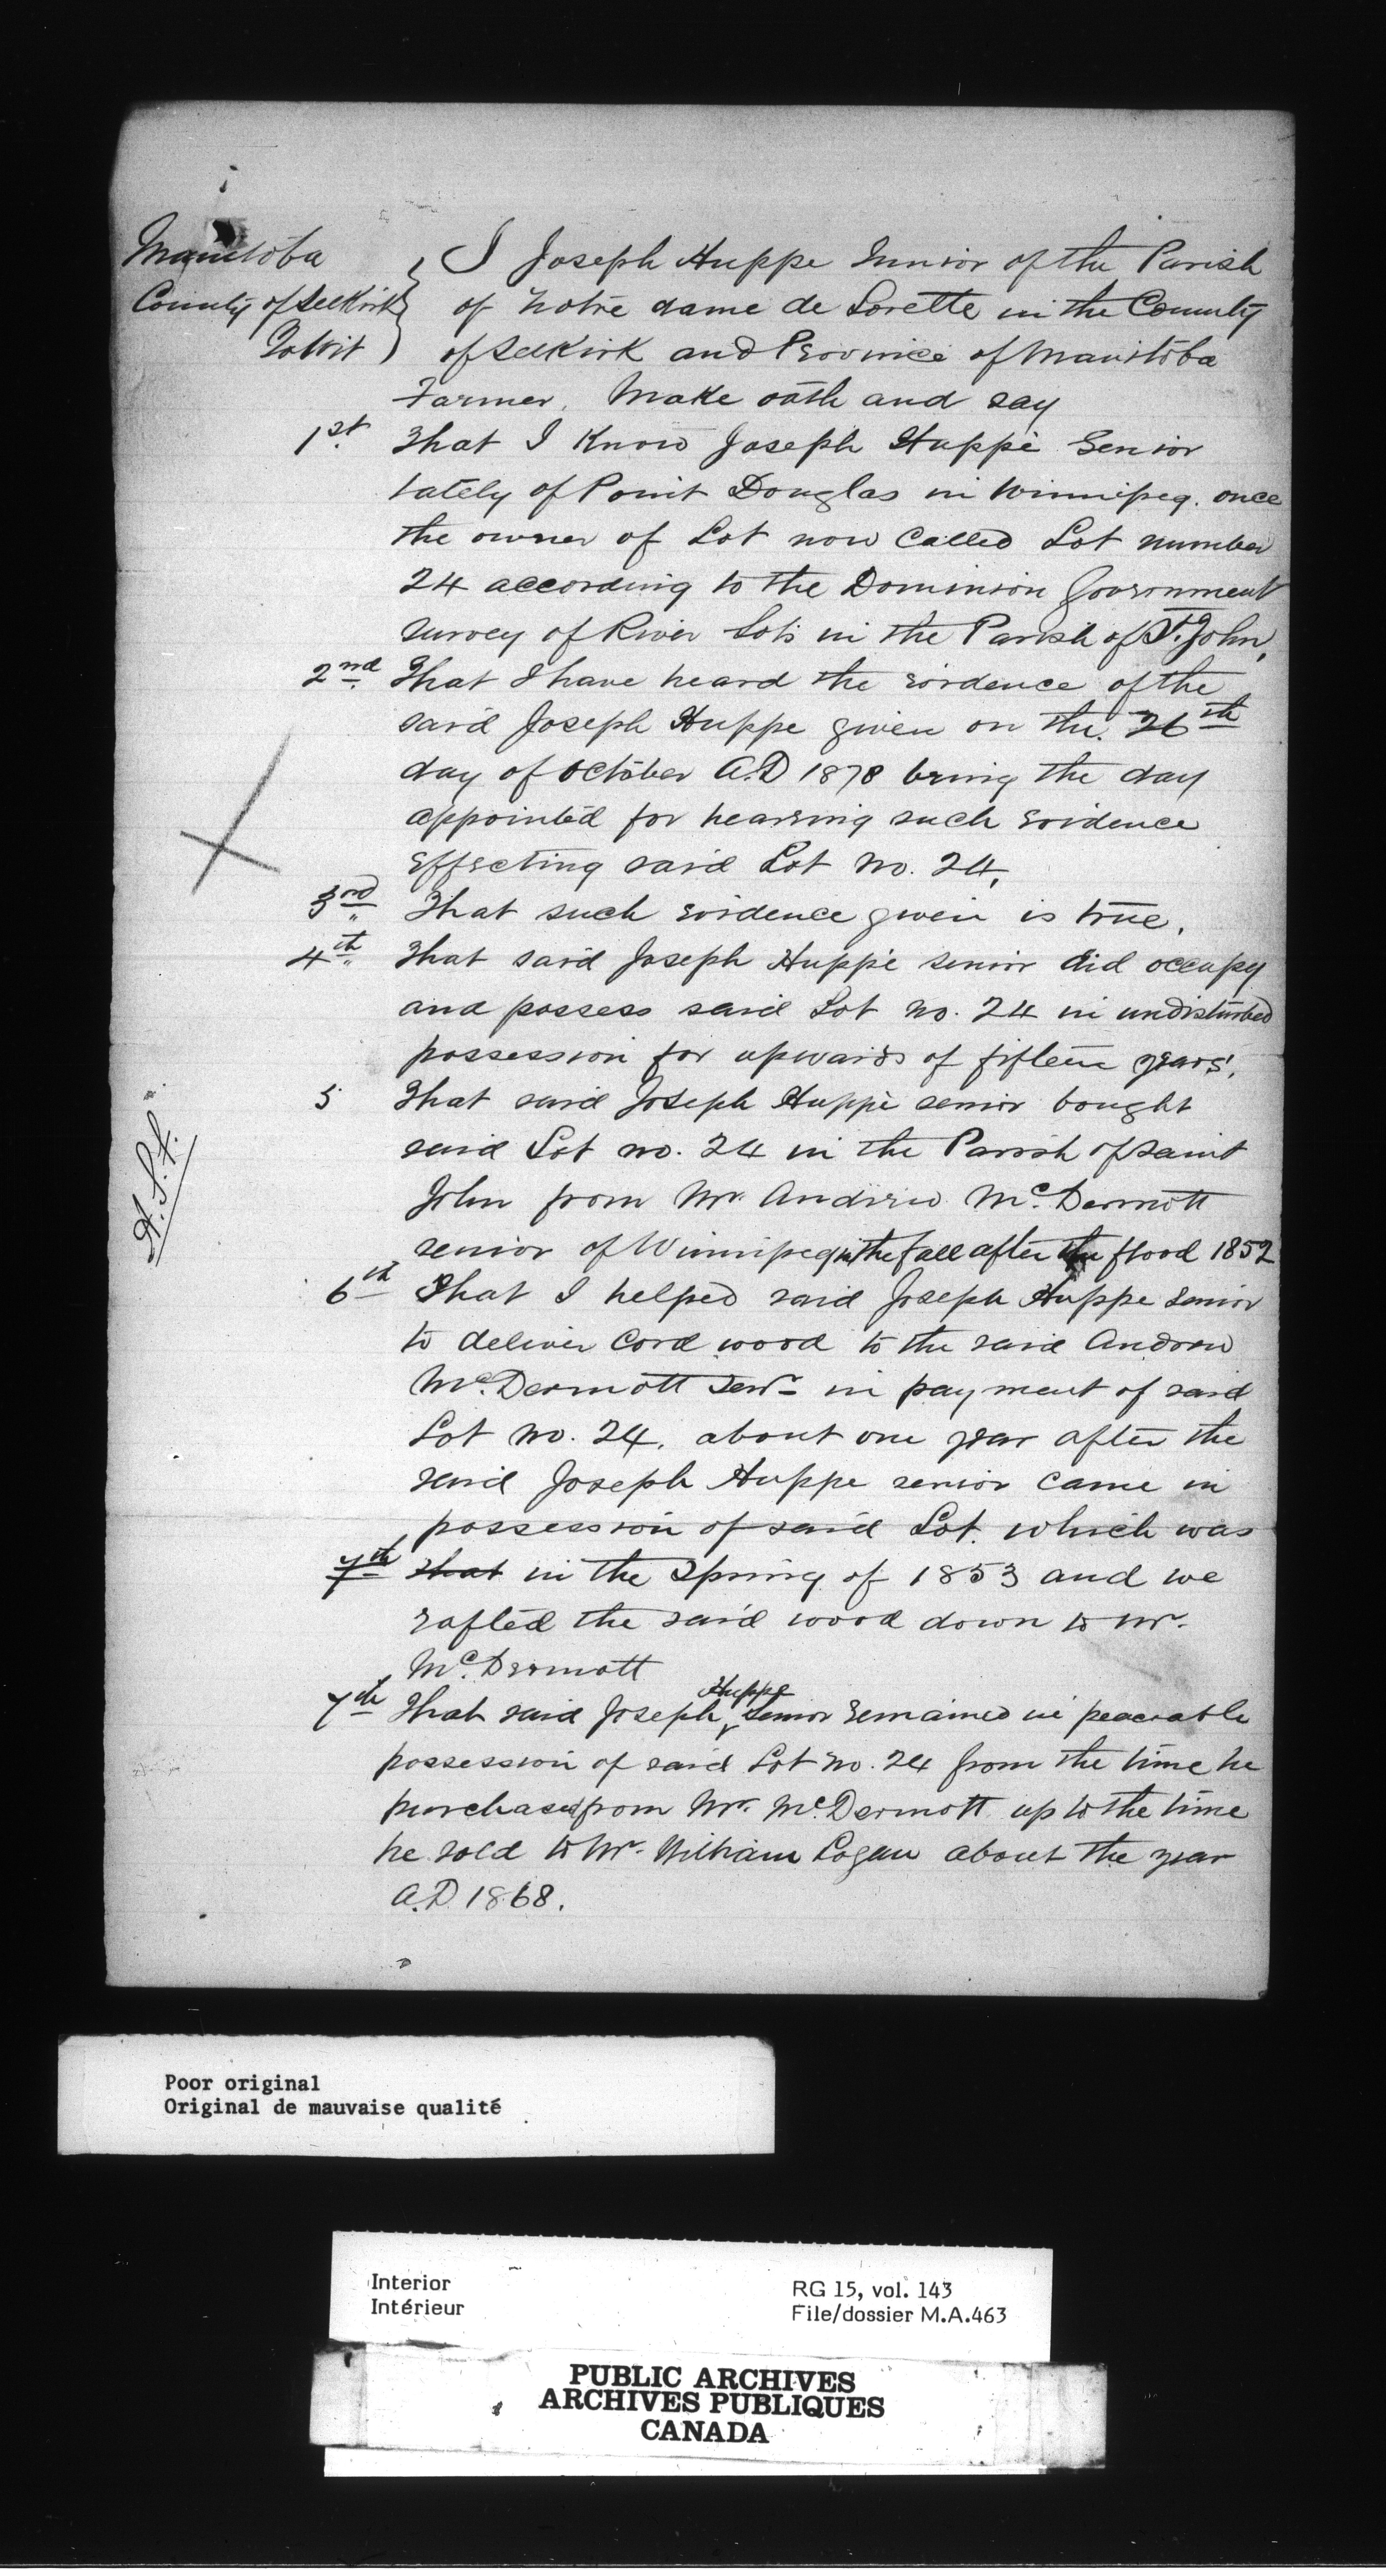 Manitoba
County of Selkirk
To Wit
I Joseph Huppe Junior of the Parish
of Notre dame de Lorette in the County
of Selkirk and Province of Manitoba
Farmer, Make oath and say
1st. That I Know Joseph Huppe Senior
lately of Point Douglas in Winnipeg. once
the owner of Lot now Called Lot number
24 according to the Dominion Government
survey of River Lots in the Parish of St. John,
2nd. That I have heard the evidence of the
said Joseph Huppe given on the 26th
day of October A.D 1878 being the day
appointed for hearing such evidence
effecting said Lot No. 24,
3rd That such evidence given is true,
4th That said Joseph Huppe senior did occupy
and possess said Lot No. 24 in undisturbed
possession for upwards of fifteen years,
5 That said Joseph Huppe senior bought
said Lot no. 24 in the Parish of Saint
John from Mr. Andrew McDermott
senior of Winnipeg in the fall after the flood 1852
6th That I helped said Joseph Huppe senior
to deliver Cord wood to the said Andrew
McDermott Senr. in payment of said
Lot No. 24, about one year after the
said Joseph Huppe senior came in
possession of said Lot. which was
7th That in the Spring of 1853 and we
rafted the said wood down to Mr.
McDermott
Huppe
7th That said Joseph senior remained in peaceable
possession of said Lot No. 24 from the time he
purchased from Mr. McDermott up to the time
he sold to Mr. William Logan about the year
A.D 1868.
A.S.F.
Poor original
Original de mauvaise qualité
Interior
Intérieur
RG 15, vol. 143
File/dossier M.A.463
PUBLIC ARCHIVES
ARCHIVES PUBLIQUES
CANADA